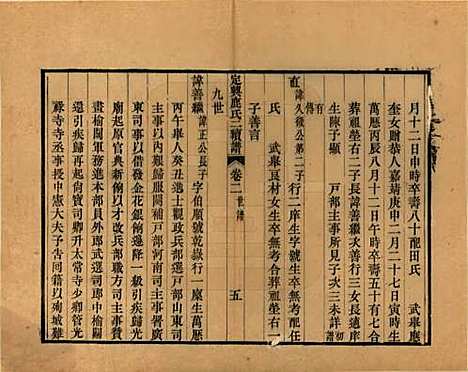 月十二日申時卒壽八十配田氏 武舉應
奎女贈恭人嘉靖庚申二月二十七日寅時生
萬厯丙辰八月十二日午時卒壽五十有七合
葬祖塋右二子長諱善繼次善行三女長適
生陳子顯 戶部主事所見子次三未詳
有傳 初譜
諱久徵公第二子行二庠生字號生卒無考配任
氏 武舉良材女生卒無考合葬祖塋右一
子善言
定興鹿氏二續譜 卷二 世譜 五
九世
諱善繼諱正公長子字伯順號乾嶽行一廩生萬厯
丙午舉人癸丑進士觀政兵部天啟戶部山東司
主事丁艱服闋補戶部河南司主事署廣
東司事以借發金花銀降一級引疾歸光
廟起原官典新餉以才改兵部職方司主事贊
畫榆關軍務進本部員外郎武選司郎中榆
還引疾歸起尚寶司卿升太常寺少卿管光
祿寺寺丞事中憲大夫予告回籍以殉城難